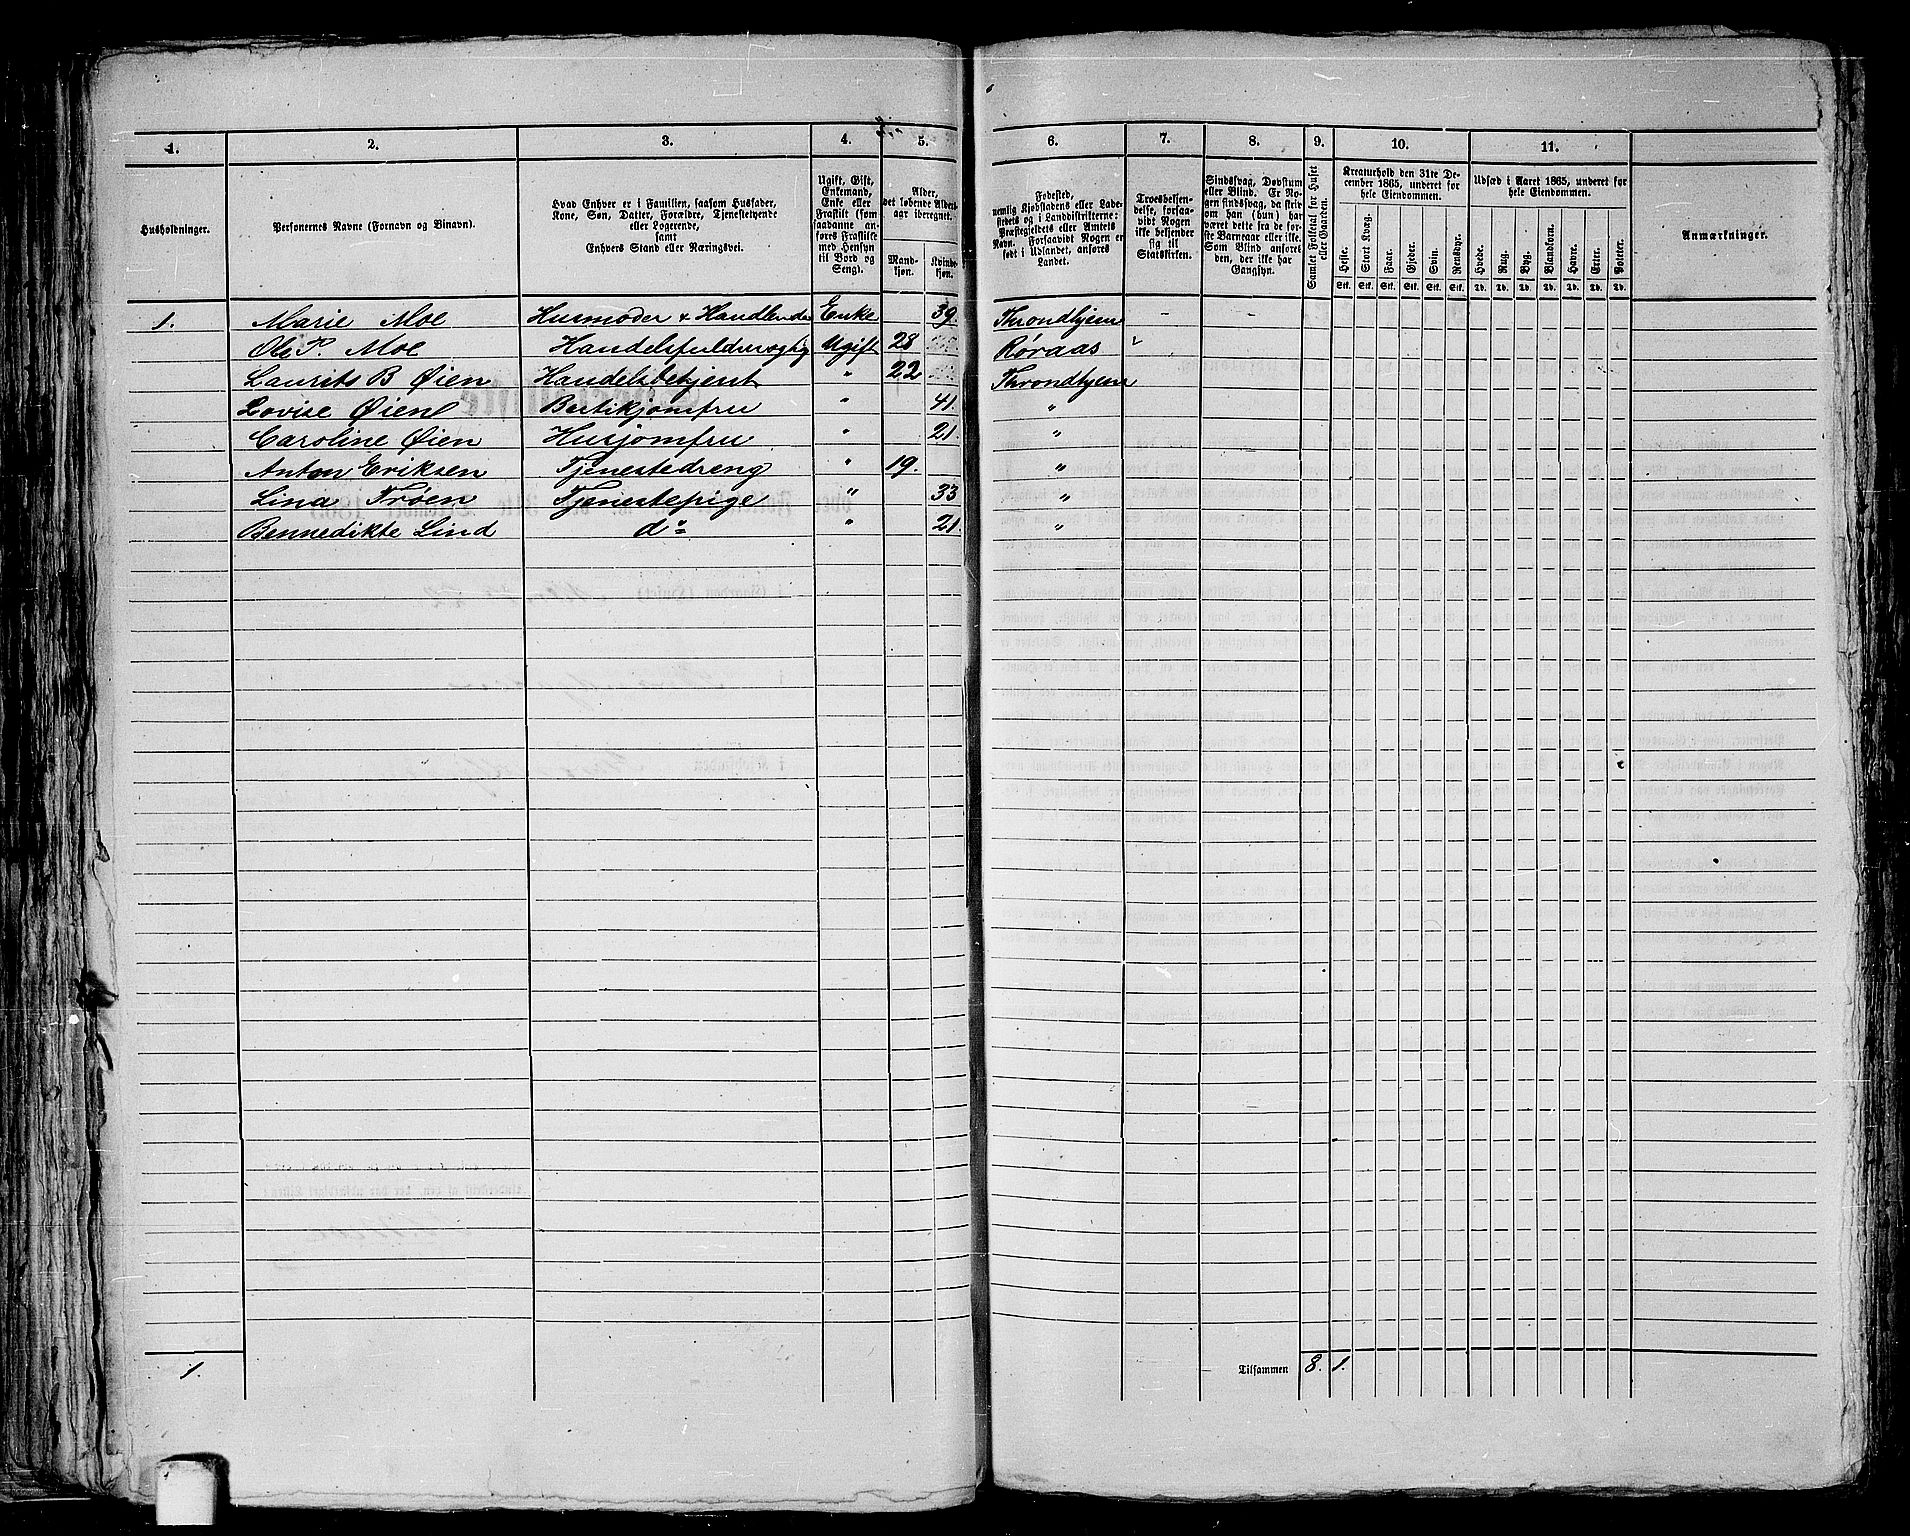 1. 2. 3. 4. 5. 6. 7. 8. 9. 10. 11.
Husholdninger.
Personernes Navne (Fornavn og Binavn).
Hvad Enhver er i Familien, saasom Husfader,
Kone, Søn, Datter, Forældre, Tjenestetyende
eller Logerende,
samt
Enhvers Stand eller Næringsvei.
Ugift, Gift,
Enkemand,
Enke eller
Fraskilt (som
saadanne an-
føres Fraskilte
med Hensyn
til Bord og
Seng).
Alder,
det løbende Alders-
aar iberegnet.
Mand-
kjøn.
Kvinde-
kjøn.
Fødested,
nemlig Kjøbstadens eller Lade-
stedets og i Landdistrikterne:
Præstegjeldets eller Amtets
Navn. Forsaavidt Nogen er
født i Udlandet, anføres
Landet.
Troesbekjen-
delse, forsaa-
vidt Nogen
ikke bekjender
sig til
Statskirken.
Sindssvag, Døvstum
eller Blind. Er No-
gen sindssvag, da skriv
om han (hun) har
været dette fra de før-
ste Barneaar eller ikke.
Som Blind anføres
den, der ikke har
Gangsyn.
Samlet Folketal for Huset
eller Gaarden.
Kreaturhold den 31te De-
cember 1865, underet for
hele Eiendommen.
Heste. Stort Kvæg. Faar. Gjeder. Svin. Rensdyr.
Stk. Stk. Stk. Stk. Stk. Stk.
Udsæd i Aaret 1865, underet for
hele Eiendommen.
Hvede. Rug. Byg. Blandkorn. Havre. Erter. Poteter.
Td. Td. Td. Td. Td. Td. Td.
Anmærkninger.
1. Marie Moe Husmoder & Handlende Enke 39. Throndhjem
Ole P. Moe Handelsfuldmægtig Ugift 28 Røraas
Laurits B Øien Handelsbetjent " 22 Throndhjem
Lovise Øien Butikjomfru " 41. "
Caroline Øien Husjomfru " 21. "
Anton Eriksen Tjenestedreng " 19. "
Lina Trøen Tjenestepige " 33 "
Bennedikte Lind do " 21. "
1. Tilsammen 8. 1.